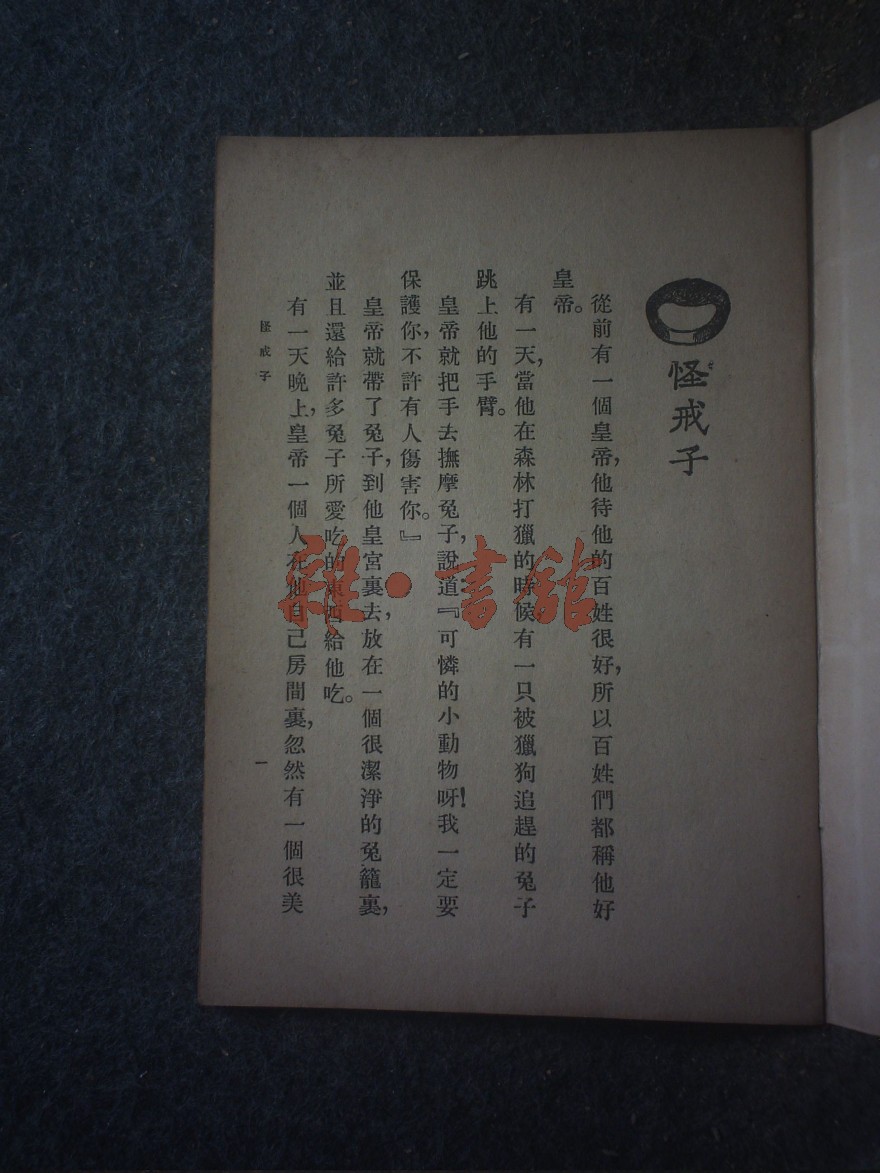 怪戒子
從前有一個皇帝，他待他的百姓很好，所以百姓們都稱他好
皇帝。
有一天，當他在森林打獵的時候，有一只被獵狗追趕的兔子
跳上他的手臂。
皇帝就把手去撫摩兔子，說道：『可憐的小動物呀！我一定要
保護你，不許有人傷害你。』
皇帝就帶了兔子，到他皇宮裏去，放在一個很潔淨的兔籠裏，
並且還給許多兔子所愛吃的東西給他吃。
有一天晚上，皇帝一個人在他自己房間裏，忽然有一個很美
怪戒子
一
雜·書館